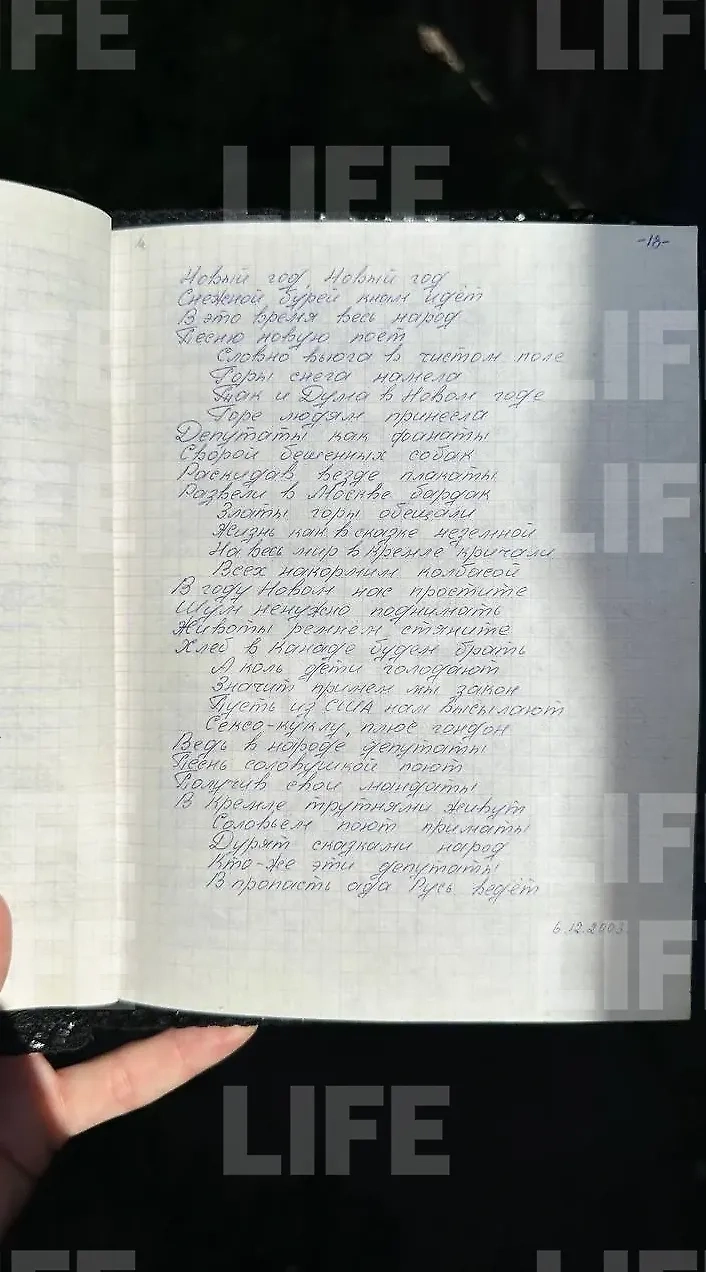 LIFE
LIFE
LIFE
-18-
Новый год, Новый год
Снежной бурей к нам идёт
В это время весь народ
Песню новую поёт
Словно вьюга в чистом поле
Горы снега намела
Так и Дума в Новом годе
Горе людям принесла
Депутаты как фанаты
Сворой бешенных собак
Раскидав везде плакаты
Развели в Москве бардак
Златы горы обещали
Жизнь как в сказке неземной
На весь мир в Кремле кричали
Всех накормим колбасой
В году Новом нас простите
Шум ненужно поднимать
Животы ремнём стяните
Хлеб в Канаде будем брать
А коль дети голодают
Значит примем мы закон
Пусть из США нам высылают
Сексо-куклу, плюс гондон
Ведь в народе депутаты
Песнь соловушкой поют
Получив свои мандаты
В Кремле трутнями живут
Соловьем поют приматы
Дурят сказками народ
Кто-же эти депутаты
В пропасть ада Русь ведёт
6.12.2003
LIFE
LIFE
LIFE
LIFE
LIFE
LIFE
LIFE